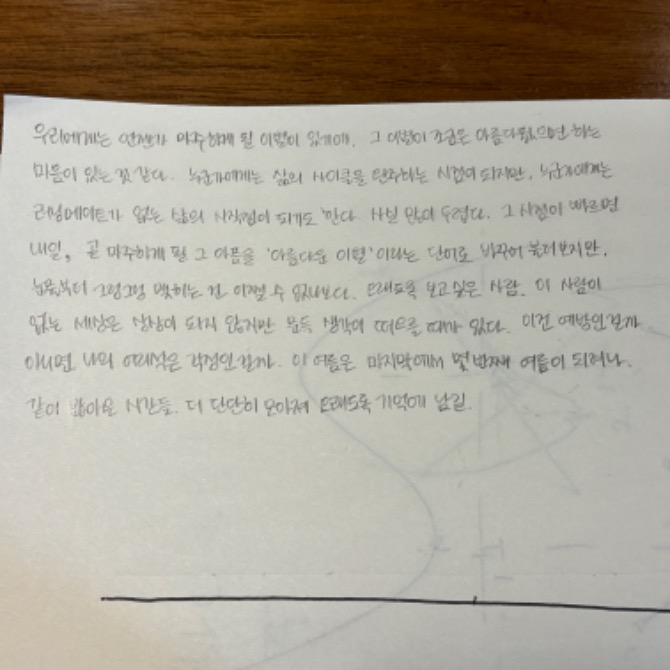 우리에게는 언젠가 마주하게 될 이별이 있기에, 그 이별이 조금은 아름다웠으면 하는
마음이 있는 것 같다. 누군가에게는 삶의 사이클을 완주하는 시점이 되지만, 누군가에게는
러닝메이트가 없는 삶의 시작점이 되기도 한다. 사실 많이 두렵다. 그 시점이 빠르면
내일, 곧 마주하게 될 그 아픔을 '아름다운 이별'이라는 단어로 바꾸어 불러보지만,
눈물부터 그렁그렁 맺히는 건 어쩔 수 없나보다. 오래도록 보고싶은 사람. 이 사람이
없는 세상은 상상이 되지 않지만 문득 생각이 떠오를 때가 있다. 이건 예방인걸까
아니면 나의 어리석은 걱정인걸까. 이 여름은 마지막에서 몇 번째 여름이 되려나.
같이 밟아온 시간들. 더 단단히 모아져 오래도록 기억에 남길.